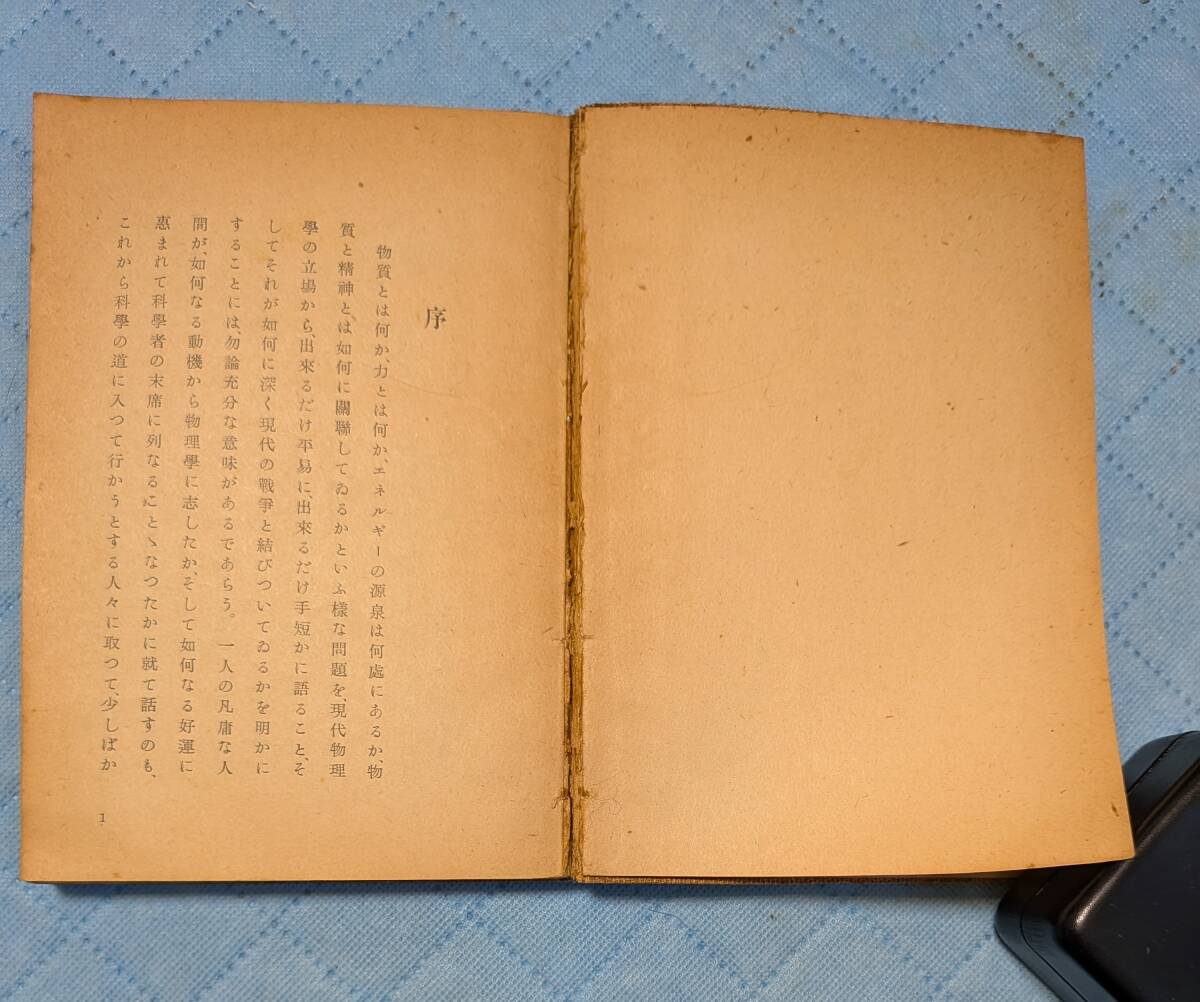 序
物質とは何か、力とは何か、エネルギーの源泉は何處にあるか、物
質と精神とは如何に關聯してゐるかといふ樣な問題を、現代物理
學の立場から、出來るだけ平易に、出來るだけ手短かに語ること、そ
してそれが如何に深く現代の戰爭と結びついてゐるかを明かに
することには、勿論充分な意味があるであらう。一人の凡庸な人
間が、如何なる動機から物理學に志したか、そして如何なる好運に
惠まれて科學者の末席に列なることゝなつたかに就て話すのも、
これから科學の道に入つて行かうとする人々に取つて、少しばか
1